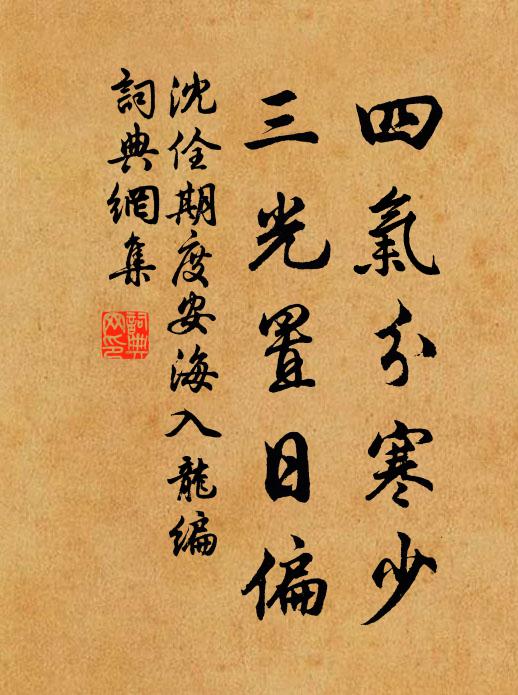 四氣分寒少
三光置日偏
沈佺期度安海入龍編
詞典網集
詞典
网印